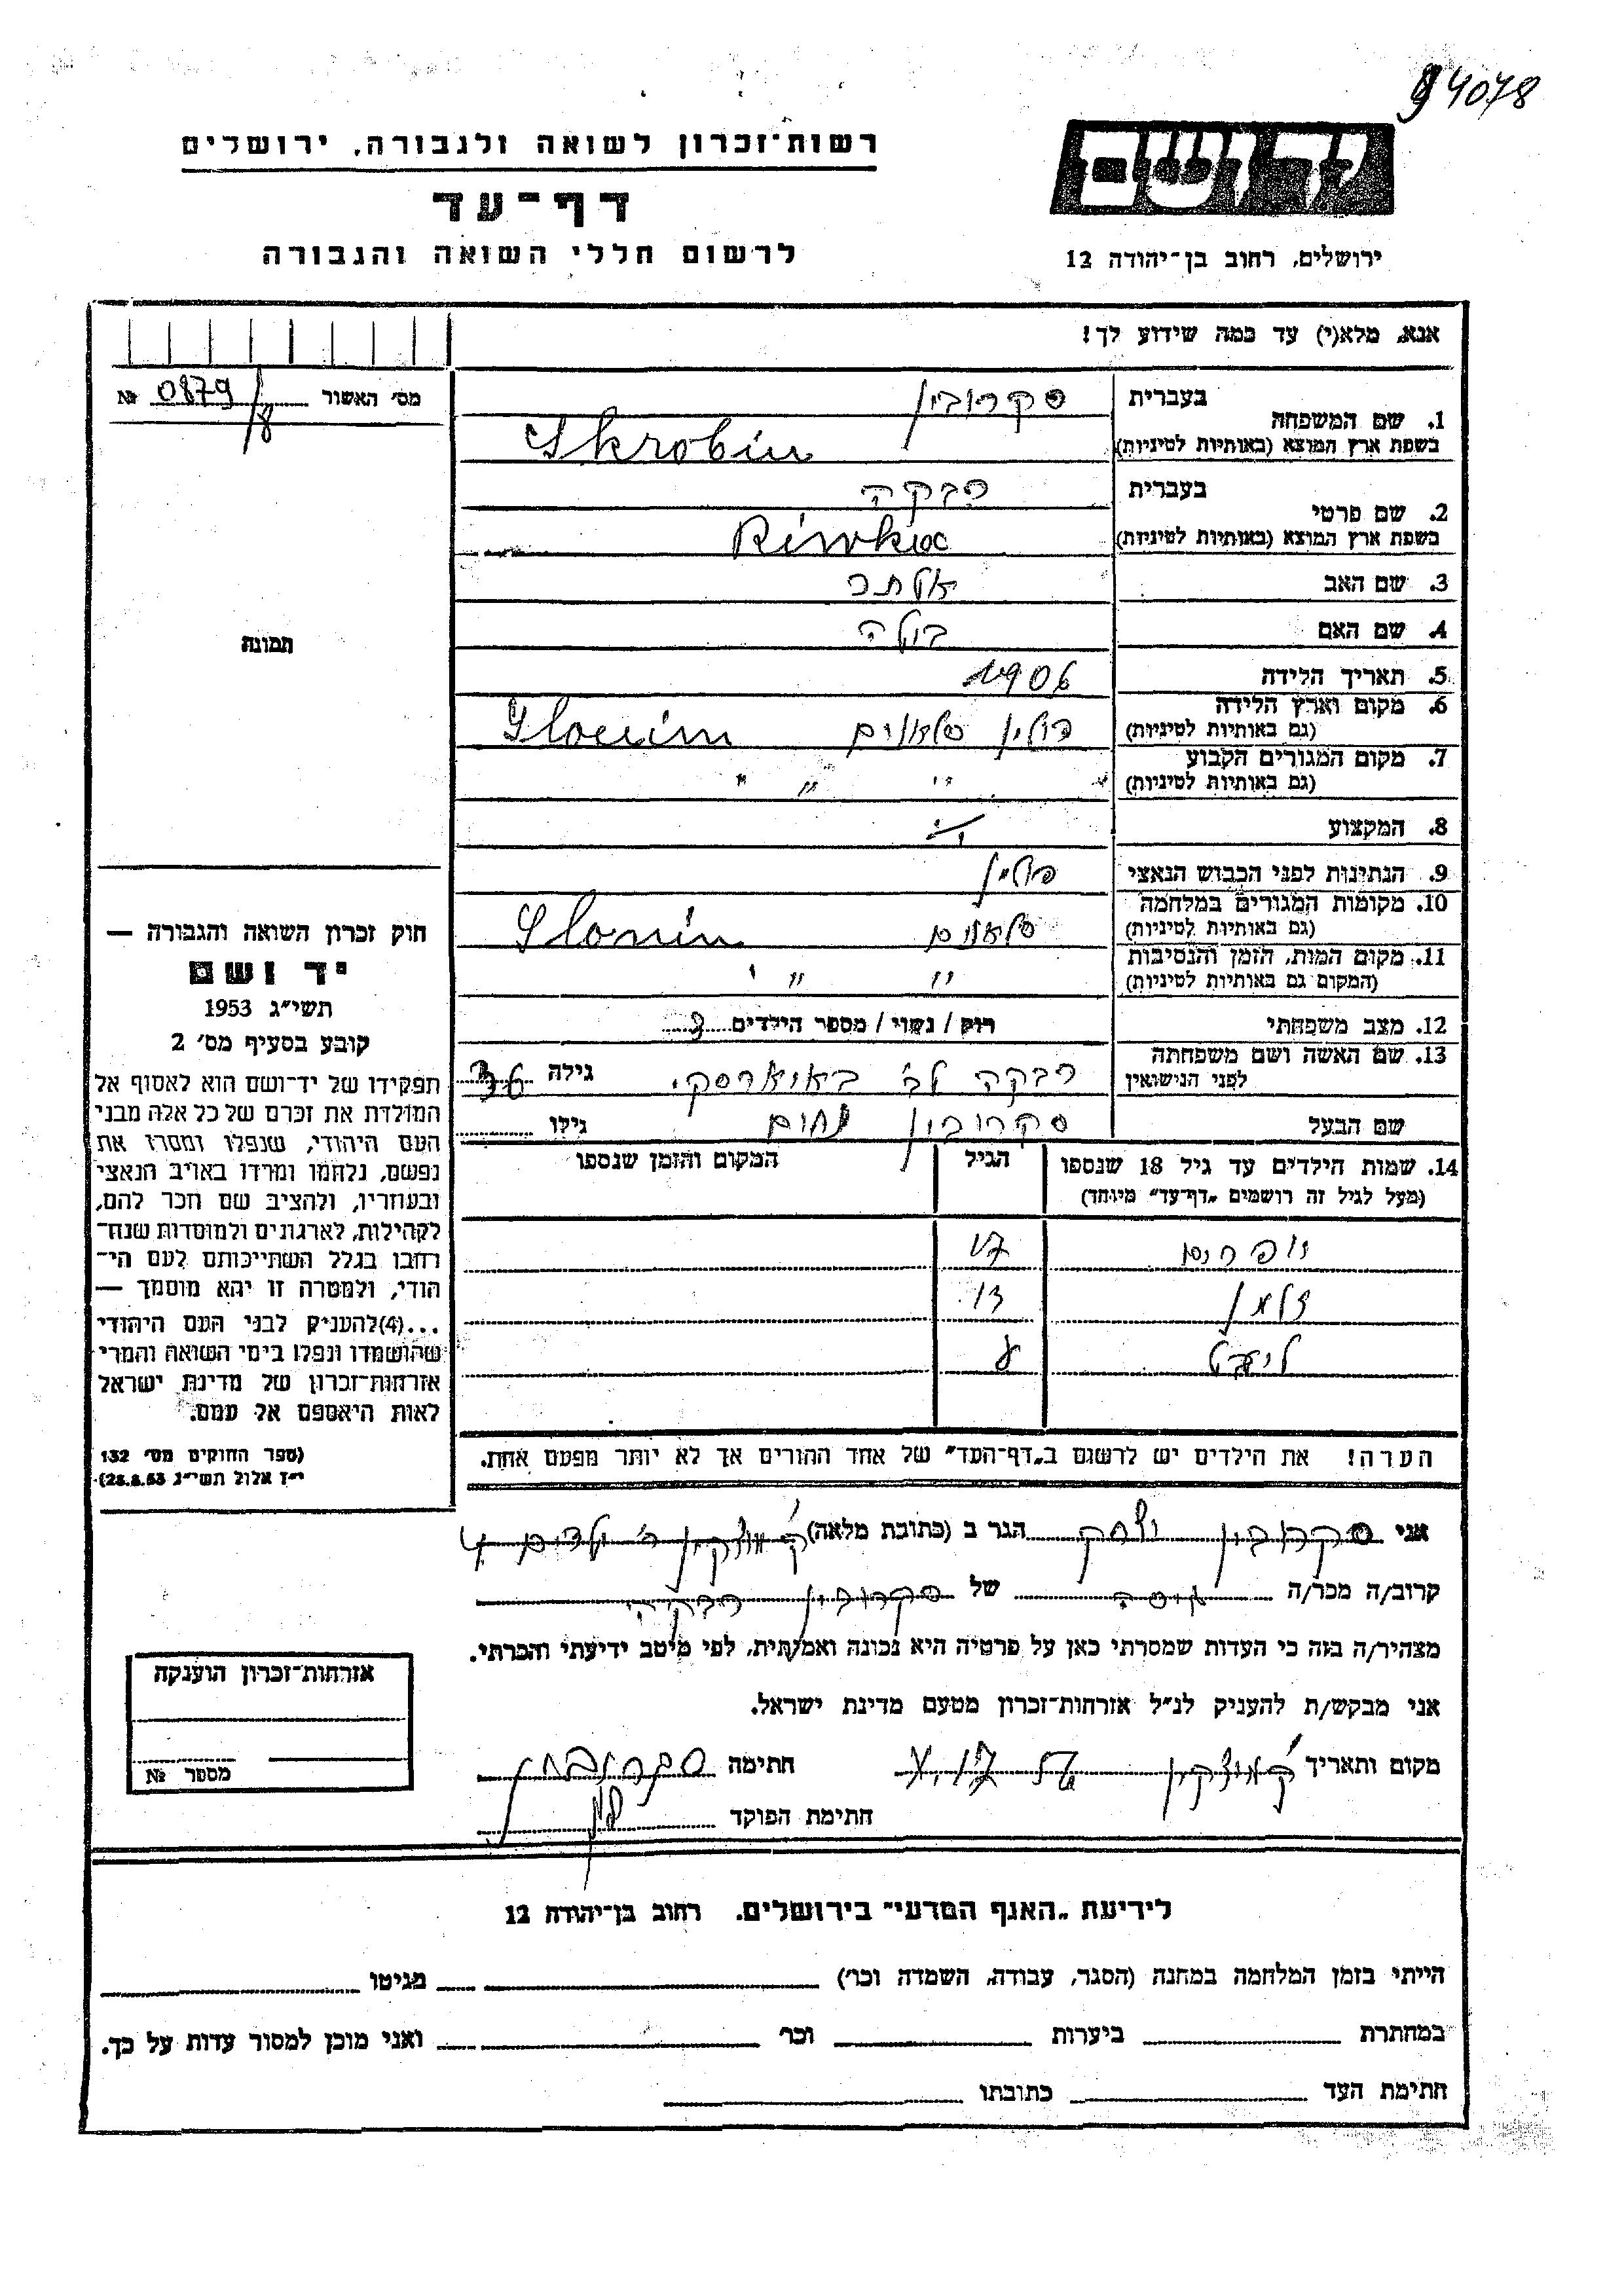 94078
רשות־זכרון לשואה ולגבורה, ירושלים
ידושם
דף־עד
לרשום חללי השואה והגבורה
ירושלים, רחוב בן־יהודה 12
אנא, מלא(י) עד כמה שידוע לך!
מס' האשור № 0879/8
1. שם המשפחה
בעברית סקרובין
בשפת ארץ המוצא (באותיות לטיניות) Skrobin
2. שם פרטי
בעברית רבקה
בשפת ארץ המוצא (באותיות לטיניות) Riwka
3. שם האב אלתר
4. שם האם
5. תאריך הלידה 1906
6. מקום וארץ הלידה פולין סלאנים Slonim
(גם באותיות לטיניות)
7. מקום המגורים הקבוע " " " "
(גם באותיות לטיניות)
8. המקצוע
9. הנתינות לפני הכבוש הנאצי פולין
10. מקומות המגורים במלחמה סלאנים Slonim
(גם באותיות לטיניות)
11. מקום המות, הזמן והנסיבות " " "
(המקום גם באותיות לטיניות)
12. מצב משפחתי רוק / נשוי / מספר הילדים 3
13. שם האשה ושם משפחתה רבקה לב' גילה 36
לפני הנישואין
שם הבעל סקרובין נחום גילו
14. שמות הילדים עד גיל 18 שנספו הגיל המקום והזמן שנספו
(מעל לגיל זה רושמים „דף־עד" מיוחד)
זלמן
הערה! את הילדים יש לרשום ב„דף־העד" של אחד ההורים אך לא יותר מפעם אחת.
תמונה
חוק זכרון השואה והגבורה —
יד ושם
תשי"ג 1953
קובע בסעיף מס' 2
תפקידו של יד־ושם הוא לאסוף אל
המולדת את זכרם של כל אלה מבני
העם היהודי, שנפלו ומסרו את
נפשם, נלחמו ומרדו באויב הנאצי
ובעוזריו, ולהציב שם וזכר להם,
לקהילות, לארגונים ולמוסדות שנח־
רבו בגלל השתייכותם לעם הי־
הודי, ולמטרה זו יהא מוסמך —
...(4)להעניק לבני העם היהודי
שהושמדו ונפלו בימי השואה והמרי
אזרחות־זכרון של מדינת ישראל
לאות היאספם אל עמם.
(ספר החוקים מס' 132
י"ז אלול תשי"ג 28.8.53)
אני סקרובין יצחק הגר ב (כתובת מלאה) ק' מוצקין
קרוב/ה מכר/ה של סקרובין רבקה
מצהיר/ה בזה כי העדות שמסרתי כאן על פרטיה היא נכונה ואמתית, לפי מיטב ידיעתי והכרתי.
אני מבקש/ת להעניק לנ"ל אזרחות־זכרון מטעם מדינת ישראל.
מקום ותאריך ק' מוצקין חתימה סקרובין
חתימת הפוקד
אזרחות־זכרון הוענקה
מספר №
לידיעת „האגף המדעי" בירושלים. רחוב בן־יהודה 12
הייתי בזמן המלחמה במחנה (הסגר, עבודה, השמדה וכו') מגיטו
במחתרת ביערות וכו' ואני מוכן למסור עדות על כך.
חתימת העד כתובתו